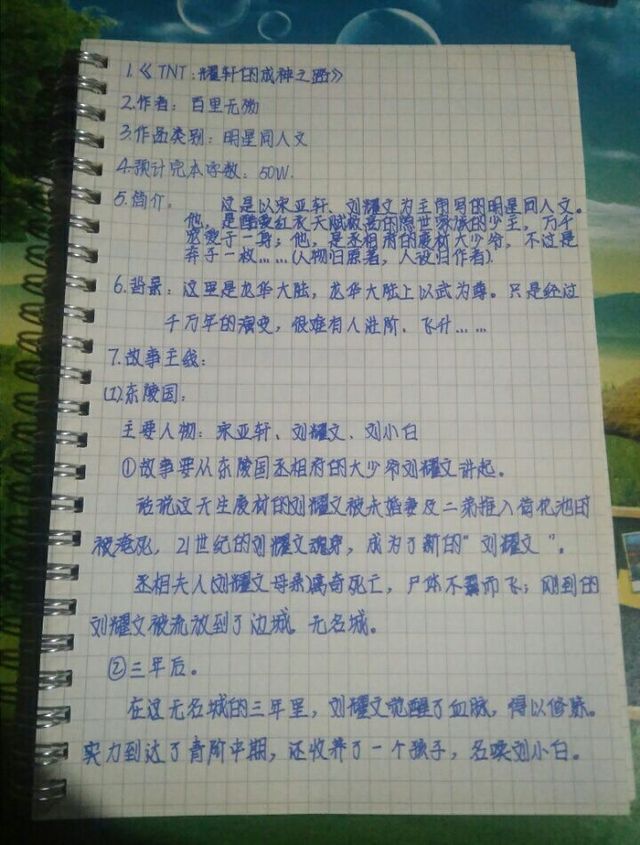 1.《TNT:耀轩的成神之路》
2.作者：百里无物
3.作品类别：明星同人文
4.预计完本字数：50W.
5.简介： 这是以宋亚轩、刘耀文为主角写的明星同人文。
他，是酷爱红衣天赋极高的隐世家族的少主，万千
宠爱于一身；他，是丞相府的废材大少爷，不过是
弃子一枚……(人物归原著，人设归作者).
6.背景：这里是龙华大陆，龙华大陆上以武为尊。只是经过
千万年的演变，很难有人进阶、飞升……
7.故事主线：
(1).东陵国：
主要人物：宋亚轩、刘耀文、刘小白
①故事要从东陵国丞相府的大少爷刘耀文讲起。
话说这天生废材的刘耀文被未婚妻及二弟推入荷花池时
被淹死，21世纪的刘耀文魂穿，成为了新的“刘耀文”。
丞相夫人(刘耀文母亲)离奇死亡，尸体不翼而飞；刚到的
刘耀文被流放到了边城 无名城。
②三年后。
在这无名城的三年里，刘耀文觉醒了血脉，得以修炼。
实力到达了青阶中期，还收养了一个孩子，名唤刘小白。